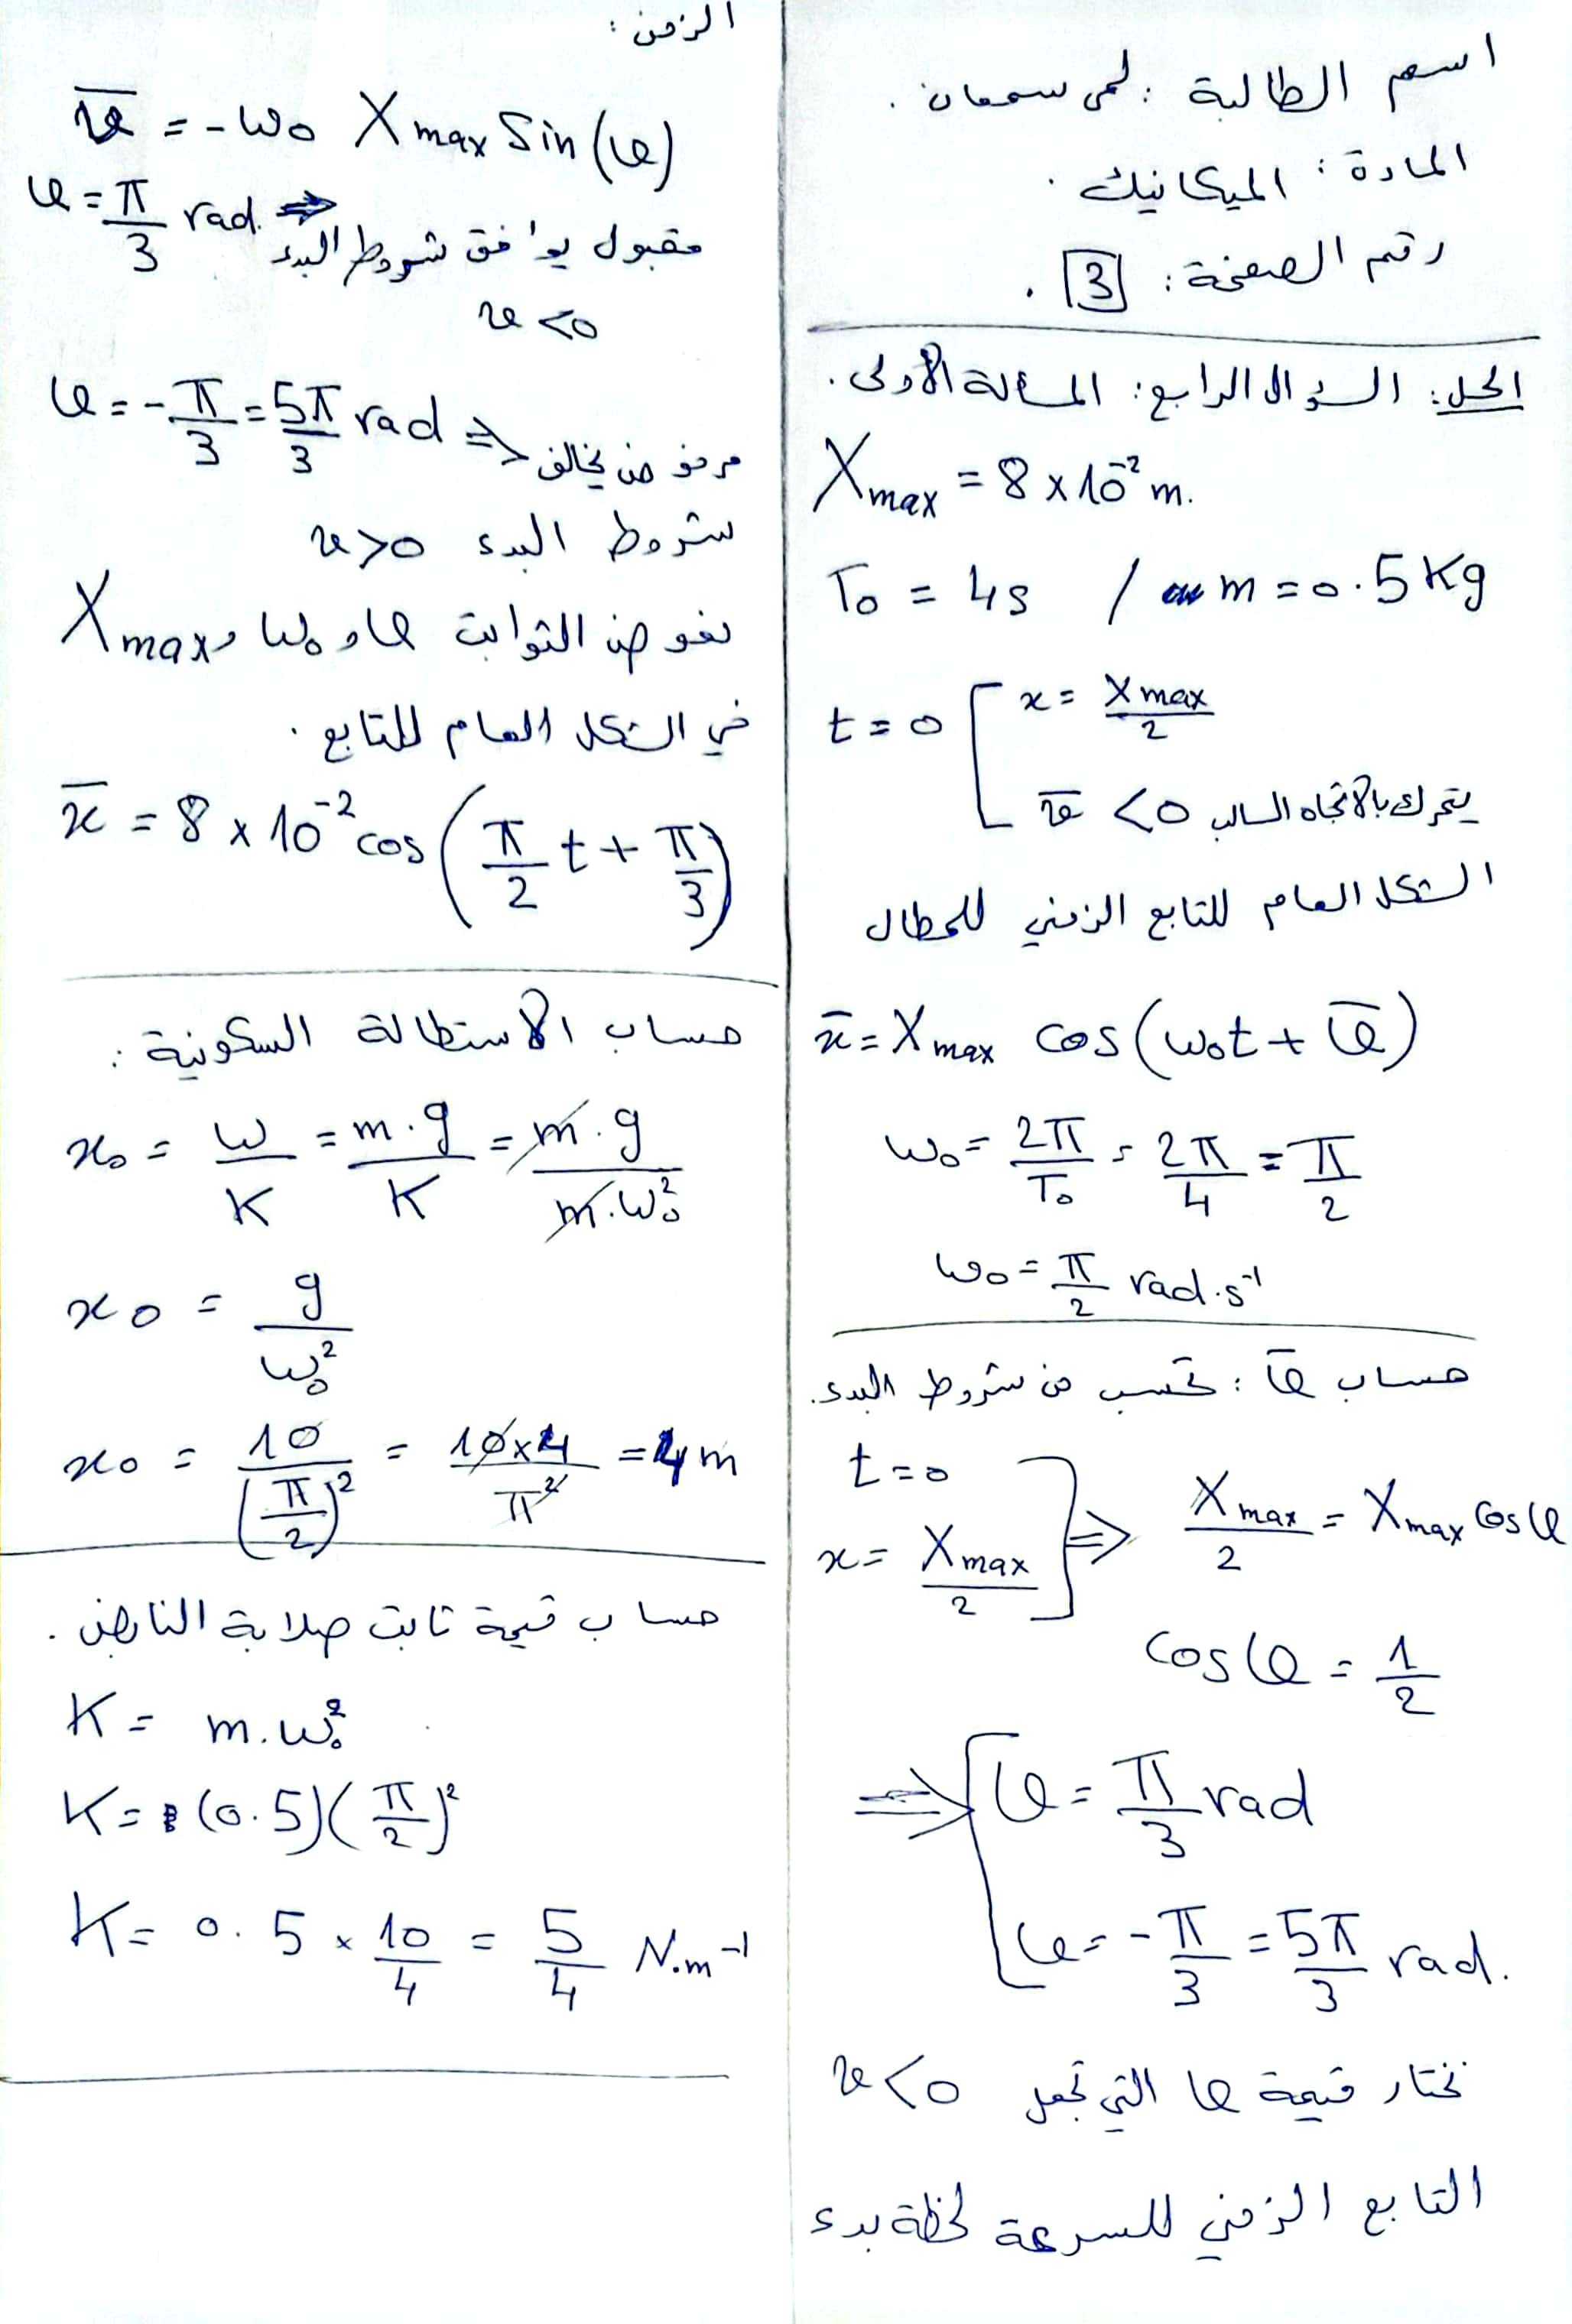 اسم الطالبة : لمى سمعان .
المادة : الميكانيك .
رقم الصفحة : 3 .
الحل : السؤال الرابع : المسألة الأولى .
Xmax = 8 × 10⁻² m.
T₀ = 4s / m = 0.5 Kg
t = 0 [ x = Xmax/2
v̅ < 0 يتحرك بالاتجاه السالب
الشكل العام للتابع الزمني للمطال
x̅ = Xmax cos(ω₀t + φ̅)
ω₀ = 2π/T₀ = 2π/4 = π/2
ω₀ = π/2 rad.s⁻¹
حساب φ̅ : تحسب من شروط البدء .
t = 0
x = Xmax/2 ] ⇒ Xmax/2 = Xmax cos φ
cos φ = 1/2
⇒ [ φ = π/3 rad
φ = -π/3 = 5π/3 rad.
نختار قيمة φ التي تجعل v < 0
التابع الزمني للسرعة لحظة بدء
الزمن :
v̅ = -ω₀ Xmax Sin(φ)
φ = π/3 rad. ⇒ مقبول يوافق شروط البدء
v < 0
φ = -π/3 = 5π/3 rad ⇒ مرفوض يخالف
شروط البدء v > 0
نعوض الثوابت φ و ω₀ و Xmax
في الشكل العام للتابع .
x̅ = 8 × 10⁻² cos(π/2 t + π/3)
حساب الاستطالة السكونية :
x₀ = W/K = m.g/K = m.g/m.ω₀²
x₀ = g/ω₀²
x₀ = 10/(π/2)² = 10×4/π² = 4 m
حساب قيمة ثابت صلابة النابض .
K = m.ω₀²
K = (0.5)(π/2)²
K = 0.5 × 10/4 = 5/4 N.m⁻¹